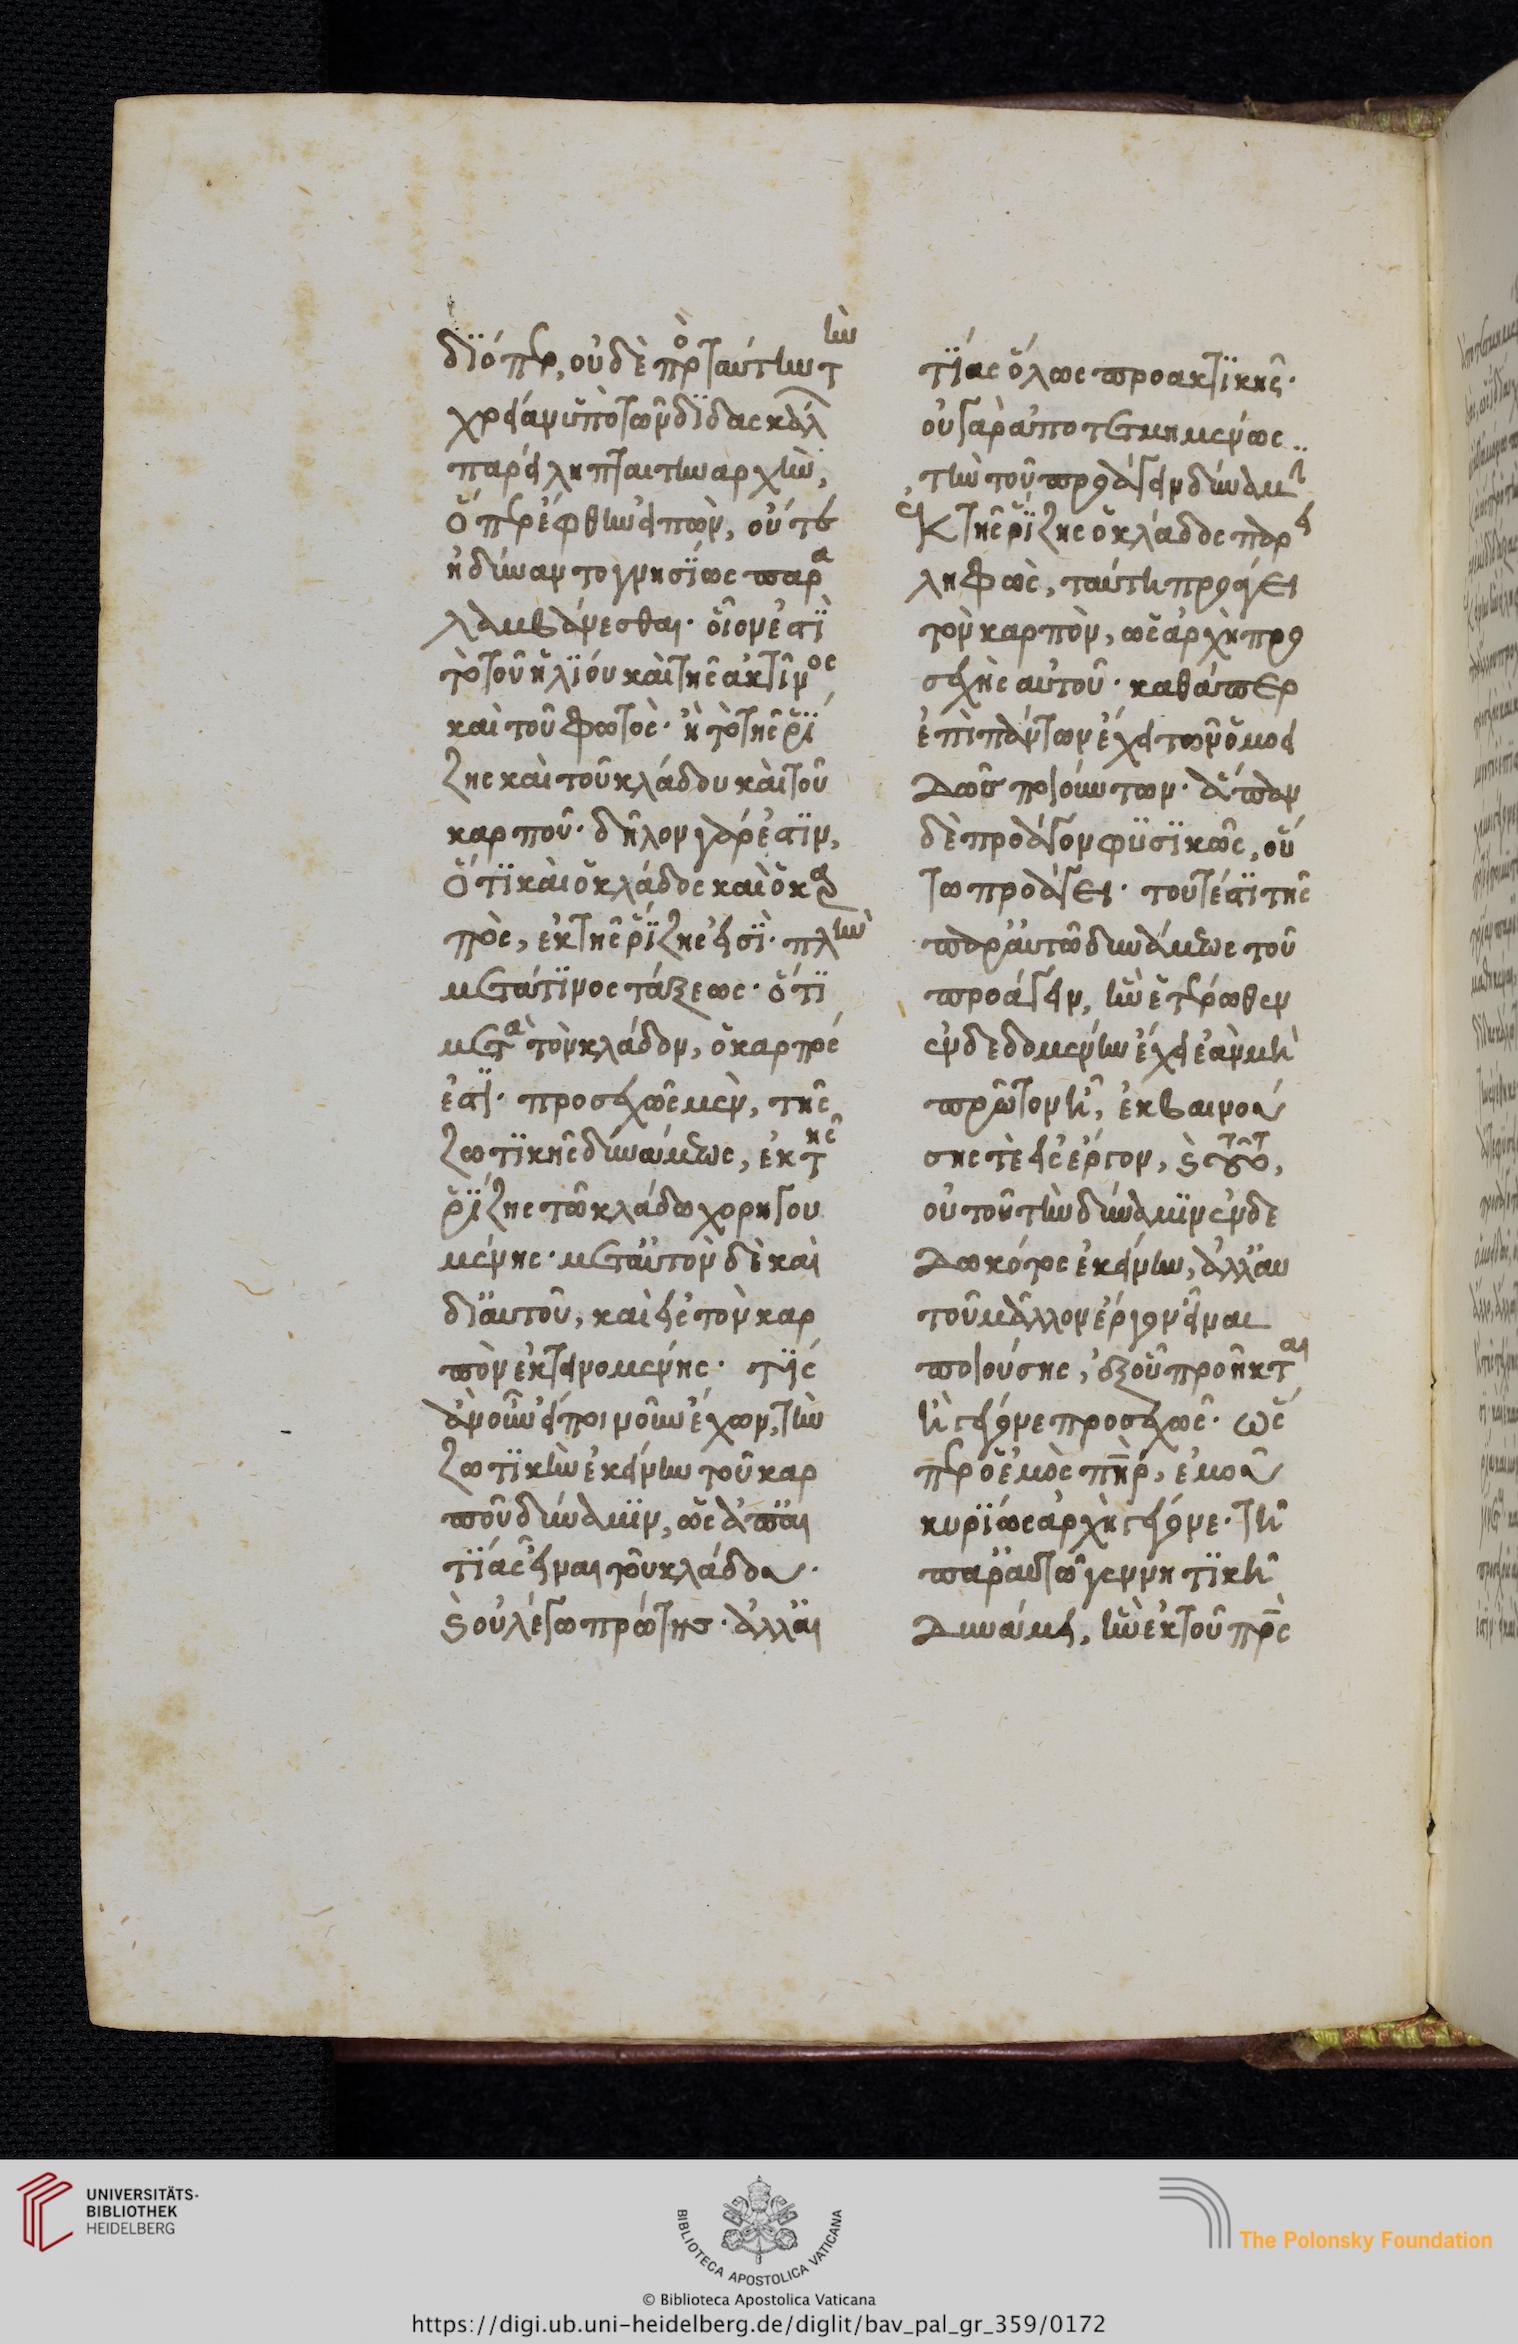 διόπερ, οὐδὲ πρὸ ταύτην τὴν
χρείαν ὑπὸ τῶν διδασκάλ
παρείληπται τὴν ἀρχὴν,
ὅπερ ἔφθην εἰπὼν, οὔτε
ἠδύνατο γνησίως παρα
λαμβάνεσθαι. οἷον ἐστὶ
τὸ τοῦ ἡλίου καὶ τῆς ἀκτῖνος
καὶ τοῦ φωτὸς. ἢ τὸ τῆς ῥί
ζης καὶ τοῦ κλάδου καὶ τοῦ
καρποῦ. δῆλον γάρ ἐστιν,
ὅτι καὶ ὁ κλάδος καὶ ὁ καρ
πὸς, ἐκ τῆς ῥίζης εἰσὶ. πλὴν
μετά τινος τάξεως. ὅτι
μετὰ τὸν κλάδον, ὁ καρπός
ἐστι. προσεχῶς μὲν, τῆς
ζωτικῆς δυνάμεως, ἐκ τῆς
ῥίζης τῶ κλάδω χορηγου
μένης. μετ αὐτὸν δὲ καὶ
δι αυτοῦ, καὶ εἰς τὸν καρ
πὸν ἐκτεινομένης. τίς
ἂν οὖν εἴποι νοῦν ἔχων, τὴν
ζωτικὴν ἐκείνην τοῦ καρ
ποῦ δύναμιν, ὡς ἀπ αι
τίας εἶναι τοῦ κλάδου.
καὶ οὐ λέγω πρώτης. ἀλλ αι
τίας ὅλως προακτικῆς.
οὐ γὰρ ἀποτετμημένως
τὴν τοῦ προάγειν δύναμι
ἐκ τῆς ῥίζης ὁ κλάδος παρει
ληφὼς, ταύτη προάγει
τὸν καρπὸν, ὡς ἀρχὴ προ
σεχὴς αὐτοῦ. καθάπερ
ἐπὶ πάντων ἔχει τῶν ὁμοει
δῶς ποιούντων. ἅπαν
δὲ προάγον φυσικῶς, οὕ
τω προάγει. τουτέστι τῆς
παρ αυτῶ δυνάμεως τοῦ
προάγειν, ἣν ἑτέρωθεν
ἐνδεδομένην ἔχει ἐὰν μὴ
πρῶτον ᾖ, ἐκβαινού
σης τὲ εἰς ἔργον, καὶ τοῦτο,
οὐ τοῦ τὴν δύναμιν ἐνδε
δωκότος ἐκείνην, ἀλλ αυ
τοῦ μᾶλλον ἔργον εἶναι
ποιούσης, ἐξ οὗ προῆκται
ἢ γέγονε προσεχῶς. ὥσ
περ ὁ ἐμὸς πὴρ, ἐμοῦ
κυρίως ἀρχὴ γέγονε. τῆ
παρ αυτῶ γεννητικῆ
δυνάμει, ἣν ἐκ τοῦ πρὸς
UNIVERSITÄTS-
BIBLIOTHEK
HEIDELBERG
BIBLIOTECA APOSTOLICA VATICANA
The Polonsky Foundation
© Biblioteca Apostolica Vaticana
https://digi.ub.uni-heidelberg.de/diglit/bav_pal_gr_359/0172